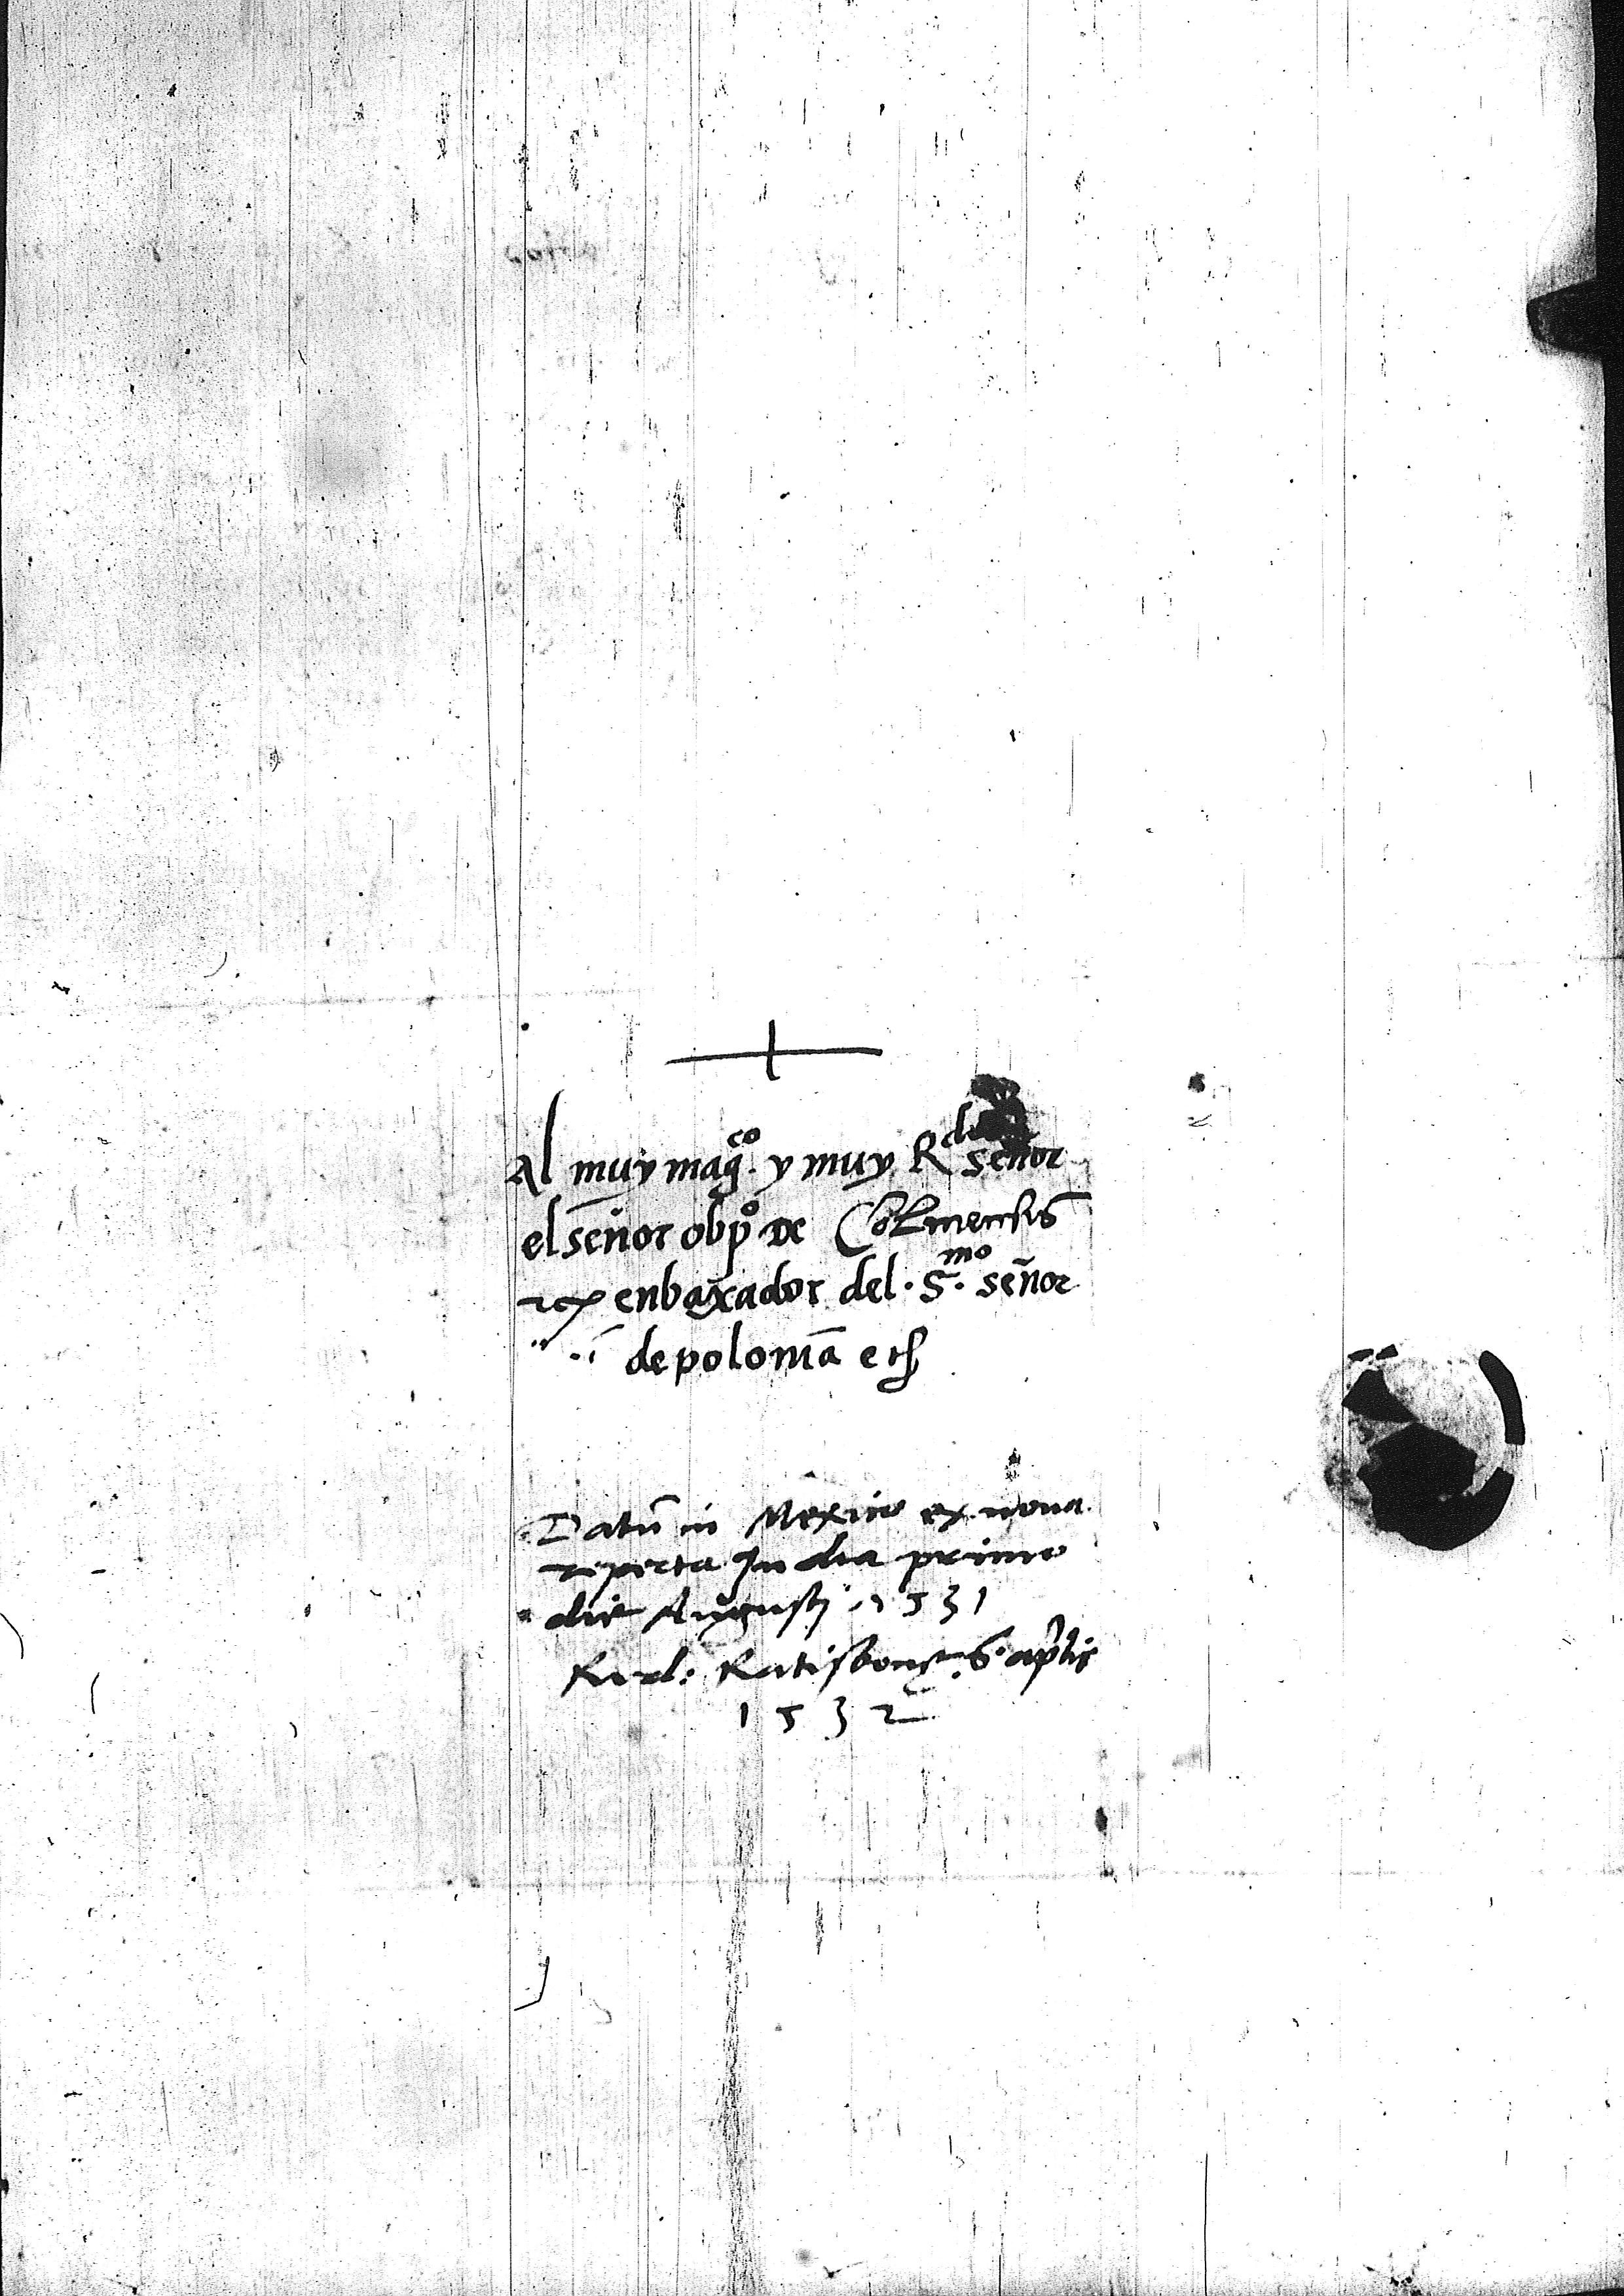 Al muy magco. y muy Rdo señor
el señor obpo de Colmensis
enbaxador del . S.mo señor
de polonia etc
Datū in Mexico ex nova
reperta India primo
die Augusti 1531
Red: Ratisbone 6. aprilis
1532